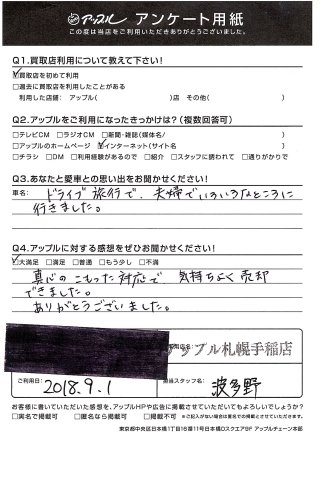 アップル アンケート用紙
この度は当店をご利用いただきありがとうございました。
Q1.買取店利用について教えて下さい!
☑買取店を初めて利用
□過去に買取店を利用したことがある
利用した店舗: アップル( )店 その他( )
Q2.アップルをご利用になったきっかけは?(複数回答可)
□テレビCM □ラジオCM □新聞・雑誌(媒体名/ )
□アップルのホームページ ☑インターネット(サイト名 )
□チラシ □DM □利用経験があるので □紹介 □スタッフに誘われて □通りがかりで
Q3.あなたと愛車との思い出をお聞かせください!
車名: ドライブ旅行で、夫婦でいろいろなところに
行きました。
Q4.アップルに対する感想をぜひお聞かせください!
☑大満足 □満足 □普通 □もう少し □不満
真心のこもった対応で 気持ちよく売却
できました。
ありがとうございました。
アップル札幌手稲店
ご利用日: 2018.9.1
担当スタッフ名: 波多野
お客様に書いていただいた感想を、アップルHPや広告に掲載させていただいてもよろしいでしょうか?
□実名で掲載可 □匿名なら掲載可 □掲載不可 ※ご記入がない場合は匿名での掲載とさせていただきます。
東京都中央区日本橋1丁目16番11号日本橋Dスクエア8F アップルチェーン本部